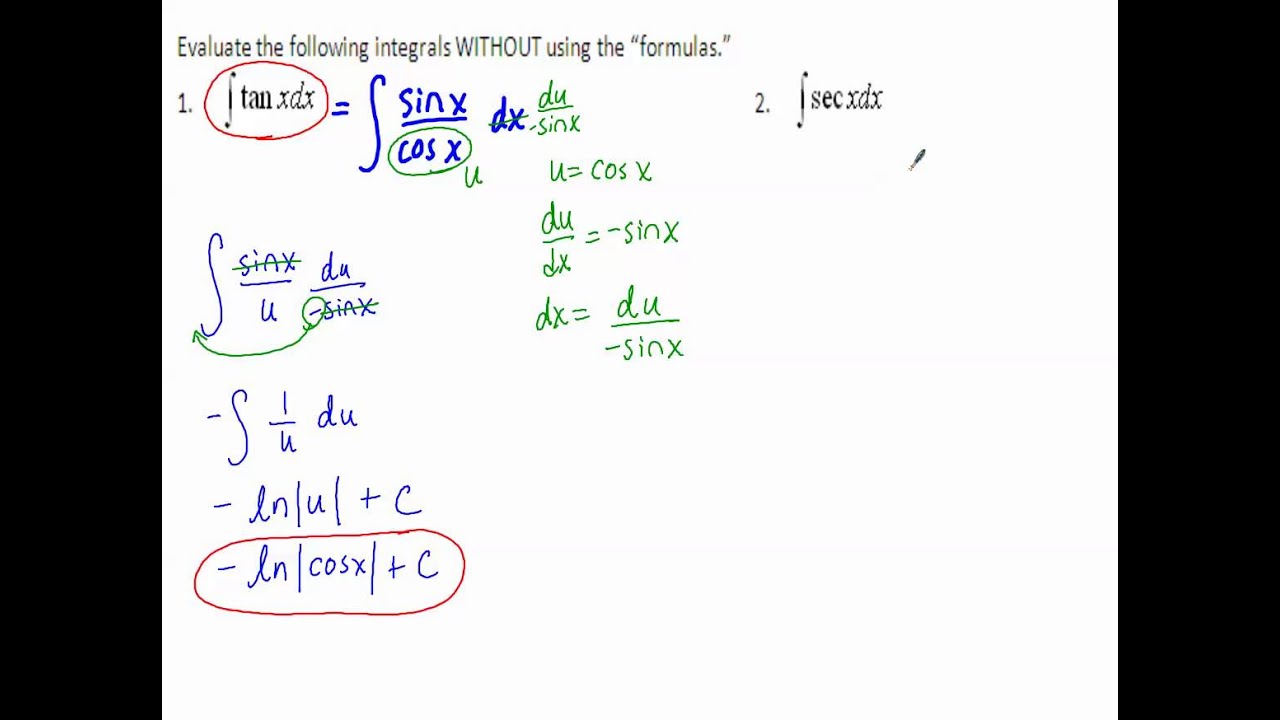 Evaluate the following integrals WITHOUT using the “formulas.”
1. ∫ tan xdx = ∫ sinx / cos x dx du / -sinx
u
u = cos x
du / dx = -sinx
dx = du / -sinx
∫ sinx / u du / -sinx
- ∫ 1 / u du
- ln|u| + C
- ln|cosx| + C
2. ∫ sec xdx